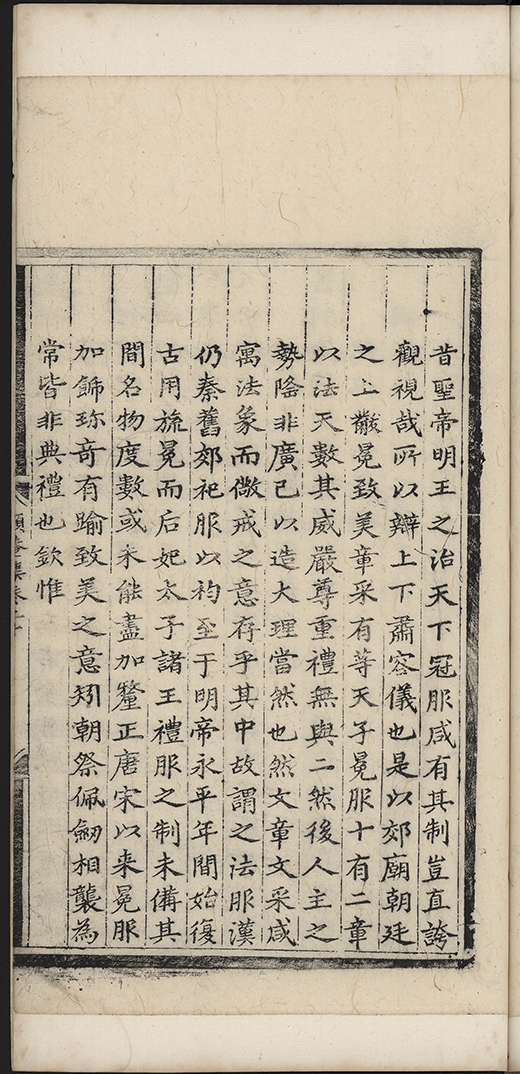 昔聖帝明王之治天下冠服咸有其制豈直誇
觀視哉所以辯上下肅容儀也是以郊廟朝廷
之上黻冕致美章采有等天子冕服十有二章
以法天數其威嚴尊重禮無與二然後人主之
勢隆非廣己以造大理當然也然文章文采咸
寓法象而儆戒之意存乎其中故謂之法服漢
仍秦舊郊祀服以袀至于明帝永平年間始復
古用旒冕而后妃太子諸王禮服之制未備其
間名物度數或未能盡加釐正唐宋以来冕服
加飾珎奇有踰致美之意矧朝祭佩劒相襲為
常皆非典禮也欽惟
頤菴集卷